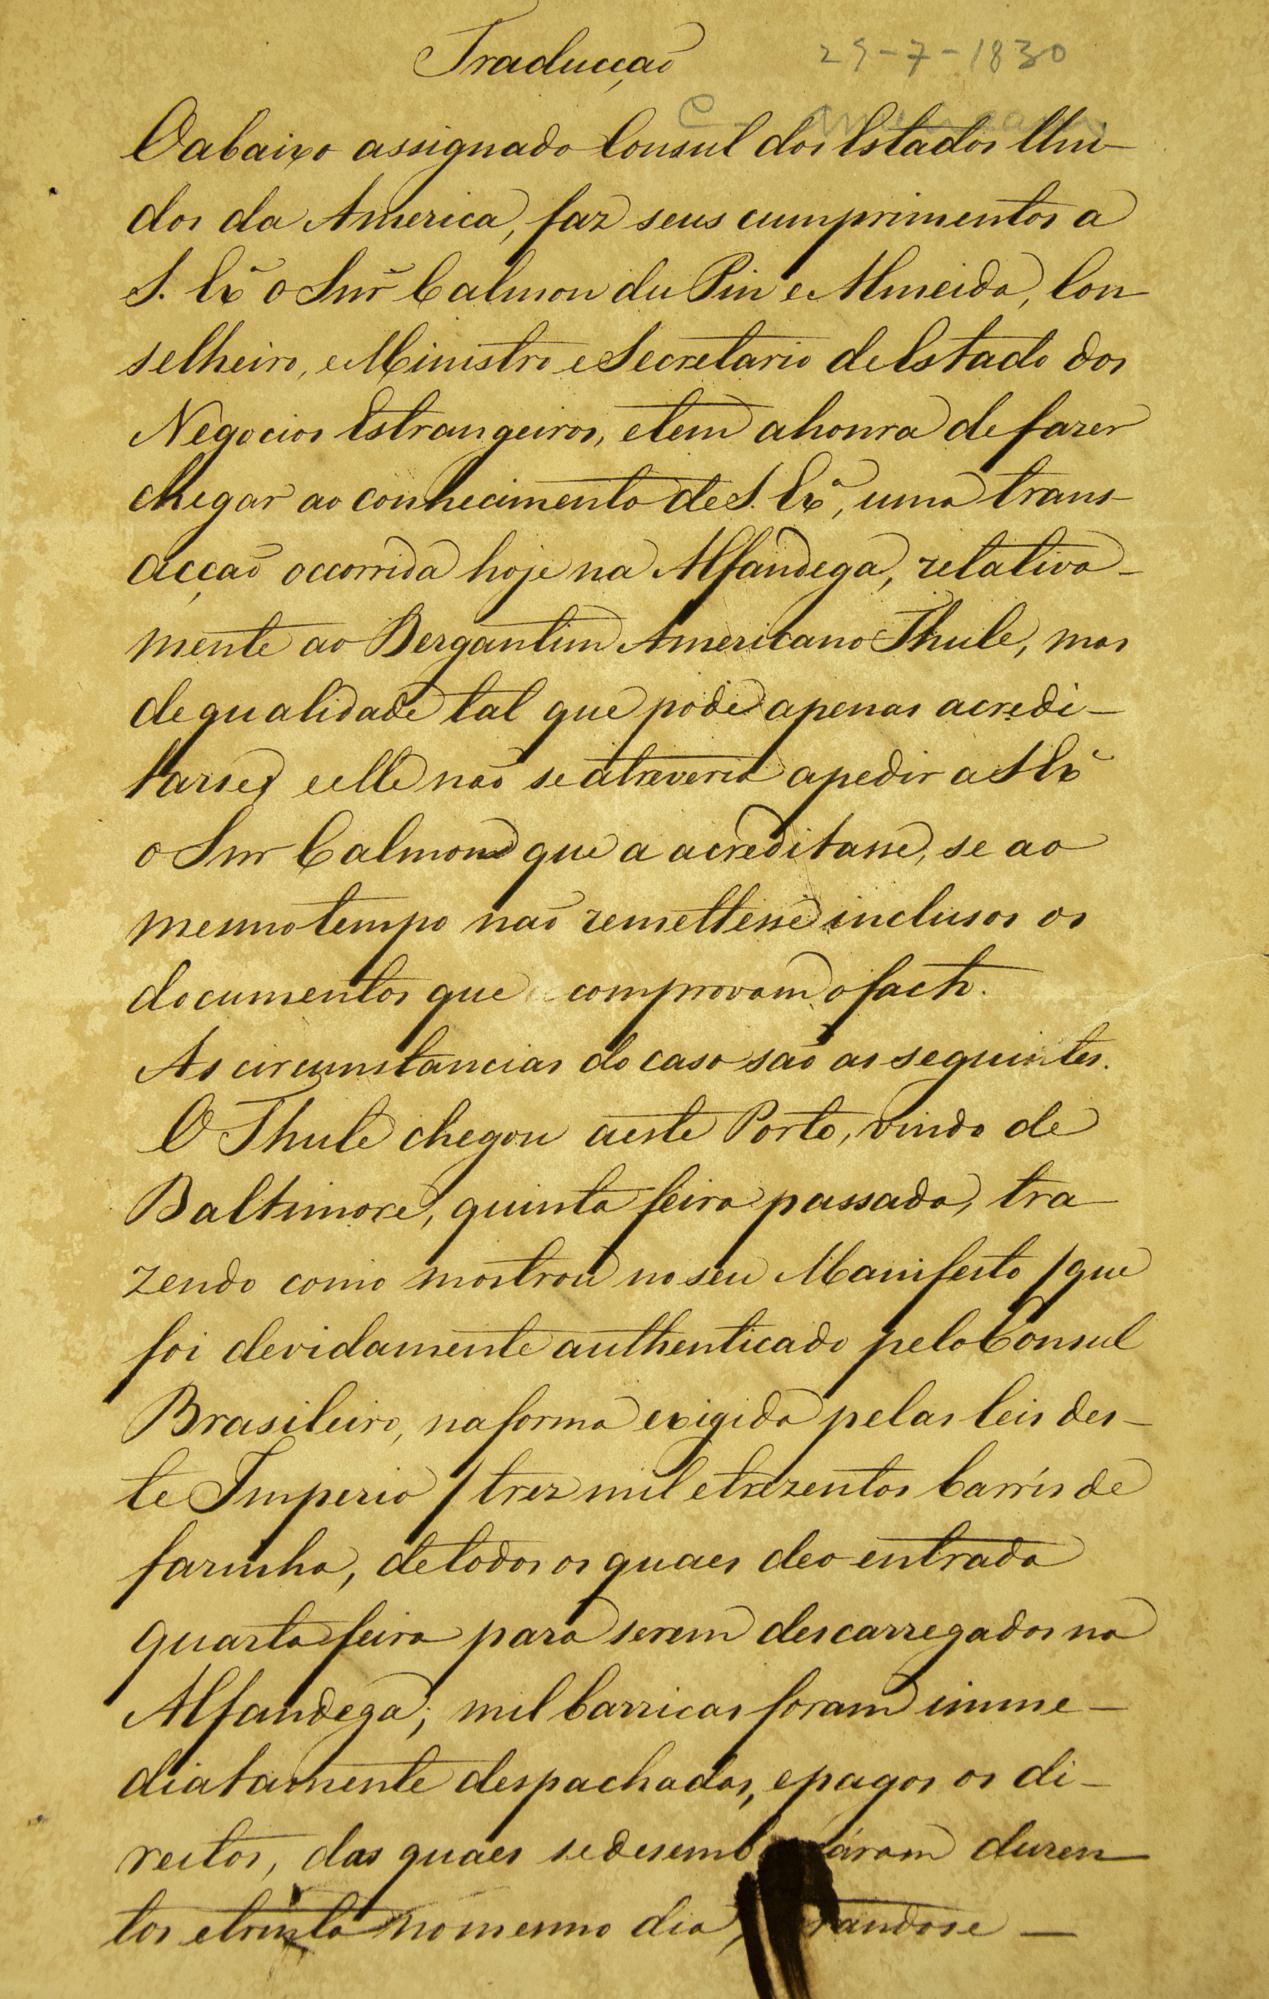 Traducção
29-7-1830
O abaixo assignado Consul dos Estados Uni-
dos da America, faz seus cumprimentos a
S. Exª o Snr Calmon du Pin e Almeida, Con-
selheiro, e Ministro e Secretario de Estado dos
Negocios Estrangeiros, e tem a honra de fazer
chegar ao conhecimento de S. Exª, uma trans-
acção occorrida hoje na Alfandega, relativa-
mente ao Bergantim Americano Thule, mas
de qualidade tal que pode apenas acredi-
tarse, e elle não se atreveria a pedir a S Exª
o Snr Calmon que a acreditasse, se ao
mesmo tempo não remettesse inclusos os
documentos que comprovam o facto.
As circumstancias do caso são as seguintes.
O Thule chegou a este Porto, vindo de
Baltimore, quinta feira passada, tra-
zendo como mostrou no seu Manifesto /que
foi devidamente authenticado pelo Consul
Brasileiro, na forma exigida pelas leis des-
te Imperio / trez mil e trezentos barrís de
farinha, de todos os quaes deo entrada
quarta feira para serem descarregados na
Alfandega; mil barricas foram imme-
diatamente despachadas, e pagos os di-
reitos, das quaes se duzen-
tos e trinta no mesmo dia,